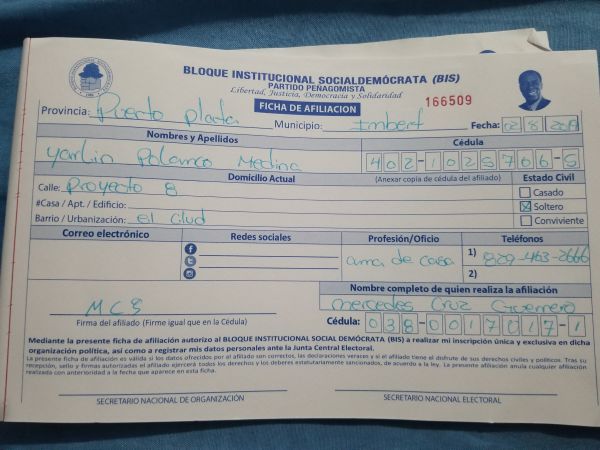 BLOQUE INSTITUCIONAL SOCIALDEMÓCRATA (BIS)
PARTIDO PEÑAGOMISTA
Libertad, Justicia, Democracia y Solidaridad
FICHA DE AFILIACION
166509
Provincia: Puerto plata Municipio: Imbert Fecha: 02 8 2019
Nombres y Apellidos Cédula
Yarlin Polanco Medina 402-1025706-5
Domicilio Actual (Anexar copia de cédula del afiliado) Estado Civil
Calle: Proyecto 8 Casado
#Casa / Apt. / Edificio: Soltero
Barrio / Urbanización: el Clud Conviviente
Correo electrónico Redes sociales Profesión/Oficio Teléfonos
ama de casa 1) 829-463-2666
2)
Nombre completo de quien realiza la afiliación
MCS Mercedes Cruz Guerrero
Firma del afiliado (Firme igual que en la Cédula) Cédula: 038-0017017-1
Mediante la presente ficha de afiliación autorizo al BLOQUE INSTITUCIONAL SOCIAL DEMÓCRATA (BIS) a realizar mi inscripción única y exclusiva en dicha
organización política, así como a registrar mis datos personales ante la Junta Central Electoral.
La presente ficha de afiliación es válida si los datos ofrecidos por el afiliado son correctos, las declaraciones veraces y si el afiliado tiene el disfrute de sus derechos civiles y políticos. Tras su
recepción, sello y firmas autorizadas el afiliado ejercerá todos los derechos y los deberes estatutariamente sancionados, de acuerdo a la ley. La presente afiliación anula cualquier afiliación
realizada con anterioridad a la fecha que aparece en esta ficha.
SECRETARIO NACIONAL DE ORGANIZACIÓN SECRETARIO NACIONAL ELECTORAL